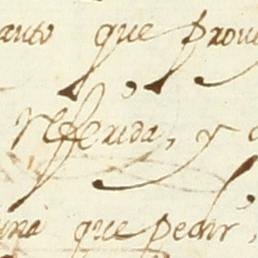 auto que prove
Refferida, y
una que pedir,